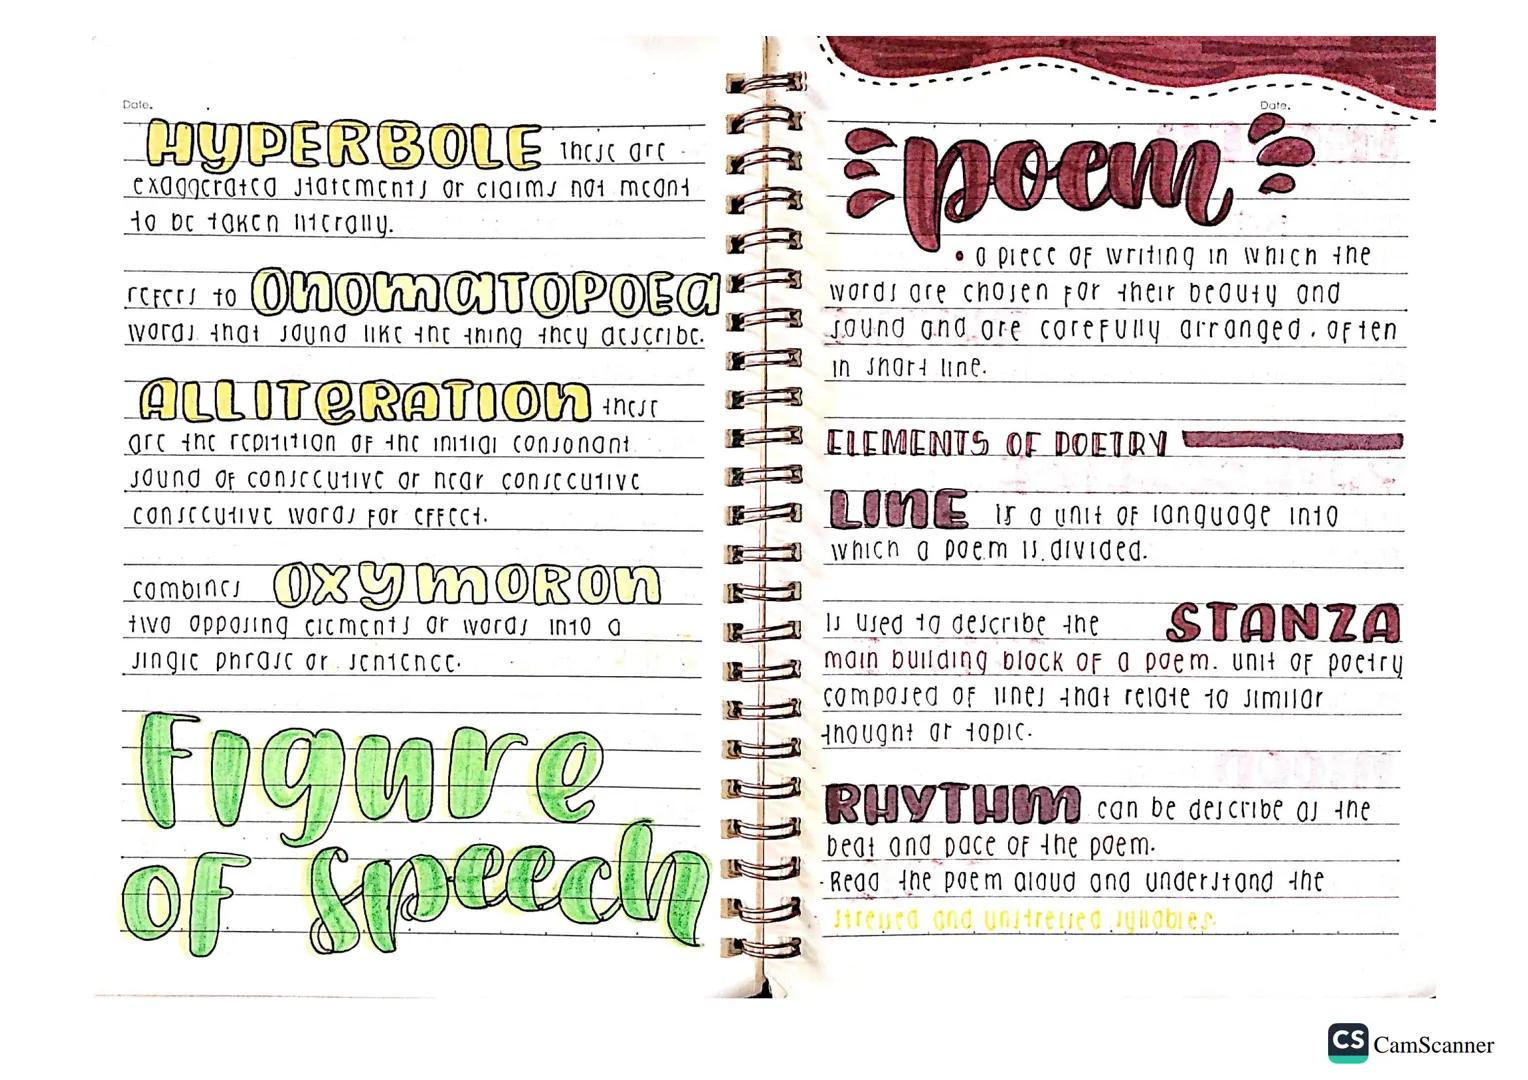 Date.
HYPERBOLE these are
exaggerated statements or claims not meant
to be taken literally.
refers to ONOMATOPOEA
words that sound like the thing they describe.
ALLITERATION these
are the repitition of the initial consonant
sound of consecutive or near consecutive
consecutive words for effect.
combines OXYMORON
two opposing elements or words into a
single phrase or sentence.
Figure
of Speech
Date.
poem
• a piece of writing in which the
words are chosen for their beauty and
sound and are carefully arranged, often
in short line.
ELEMENTS OF POETRY
LINE is a unit of language into
which a poem is divided.
is used to describe the STANZA
main building block of a poem. unit of poetry
composed of lines that relate to similar
thought or topic.
RHYTHM can be describe as the
beat and pace of the poem.
· Read the poem aloud and understand the
stressed and unstressed syllables.
CS CamScanner